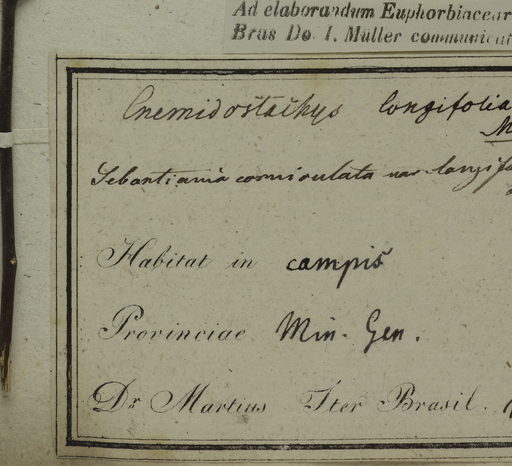 Ad elaborandum Euphorbiacear
Bras Do. I. Müller communicat
Cnemidostachys longifolia
M
Sebastiania corniculata var longifo
Habitat in campis
Provinciae Min. Gen.
Dr. Martius Iter Brasil.